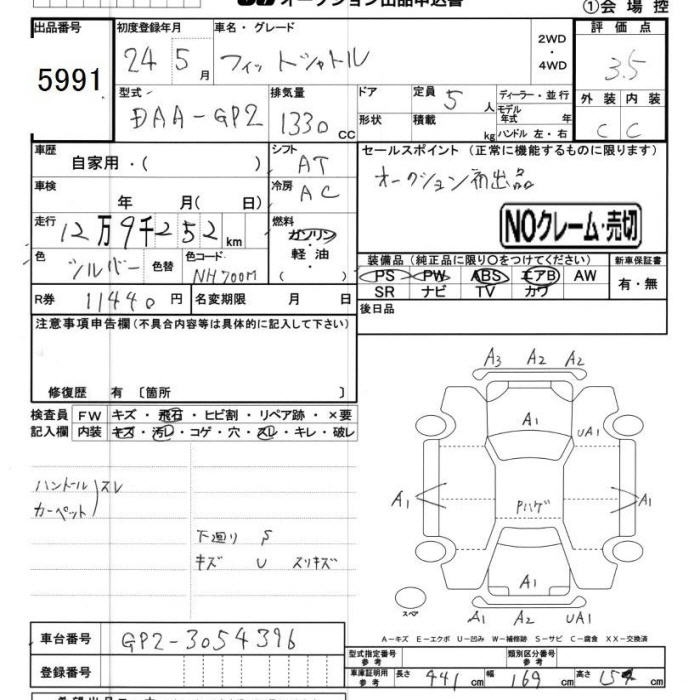 オークション出品申込書
①会場控
出品番号 初度登録年月 車名・グレード 2WD ・ 4WD 評価点
5991 24 5月 フィットシャトル 3.5
型式 DAA-GP2 排気量 1330 cc ドア 定員 5人 ディーラー・並行 外装 内装
形状 積載 kg モデル年式 年 C C
ハンドル 左・右
車歴 自家用・( ) シフト AT セールスポイント (正常に機能するものに限ります)
車検 年 月( 日) 冷房 AC オークション初出品
走行 12万9千252km 燃料 ガソリン・軽油・( ) NOクレーム・売切
色 シルバー 色替 色コード NH700M
装備品(純正品に限り○をつけてください) 新車保証書
PS PW ABS エアB AW 有・無
SR ナビ TV カワ
R券 11440円 名変期限 月 日 後日品
注意事項申告欄(不具合内容等は具体的に記入して下さい)
修復歴 有 〔箇所 〕
検査員 FW キズ・飛石・ヒビ割・リペア跡・×要
記入欄 内装 キズ・汚レ・コゲ・穴・スレ・キレ・破レ
ハンドル
カーペット スレ
下廻り S
キズ U スリキズ
A3 A2 A2
A1 UA1
A1 Pハゲ A1
A1
スペア A1 A2 UA1
A-キズ E-エクボ U-凹み W-補修跡 S-サビ C-腐食 XX-交換済
車台番号 GP2-3054396
型式指定番号 参考 類別区分番号 参考
登録番号 車庫証明用 参考 長さ 441 cm 幅 169 cm 高さ 154 cm